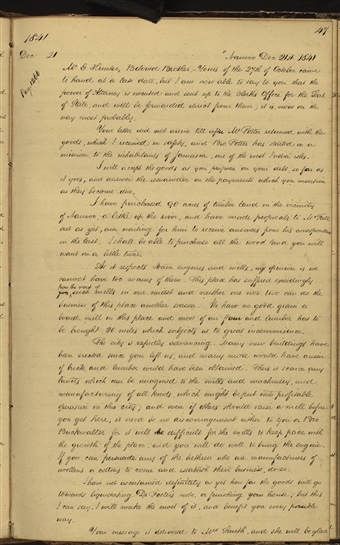 47
1841
Dec 21
Nauvoo Dec 21st 1841
Page 1266
Mr E Hunter, Beloved Brother - Yours of the 27th of October came
to hand at a late date, but I am now able to say to you that the
power of Attorney is executed and sent up to the Clerk's Office for the Seal
of State, and will be forwarded direct from there; it is now on the
way most probably.
Your letter did not arrive till after Mr Potter returned with the
goods, which I received in safety, and Bro Potter has started on a
mission to the inhabitants of Jamaica, one of the west India isles.
I will accept the goods as you propose on your debt, so far as
it goes, and answer the remainder in the payments which you mention
as they become due.
I have purchased 90 acres of timber land in the vicinity
of Nauvoo, a little up the river, and have made proposals to Mr
as yet, am waiting for him to receive answers from his correspondents
in the East. I shall be able to purchase all the wood land you will
want in a little time.
As it respects Steam engines and mills, my opinion is we
cannot have too many of them. This place has suffered exceedingly
from the want of
such mills in our midst and neither one nor two can do the
business of this place another season. We have no good grain or
board mill in this place and most of our flour and lumber has to
be brought 20 miles which subjects us to great inconvenience.
The city is rapidly advancing. Many new buildings have
been erected since you left us, and many more would have arisen
if brick and lumber could have been obtained. There is scarce any
limits which can be imagined to the mills and machinery, and
manufacturing of all kinds which might be put into profitable
operation in this city, and even if others should raise a mill before
you get here, it need be no discouragement either to you or Bro
Buckwalter for it will be difficult for the mills to keep pace with
the growth of the place, and you will do well to bring the engine.
If you can persuade any of the brethren who are manufacturers of
woollens or cottons to come and establish their business, do so.
I have not ascertained definitely as yet how far the goods will go
towards liquidating Dr Foster's note, or finishing your house, but this
I can say, I will make the most of it, and benefit you every possible
way.
Your message is delivered to Mrs Smith, and she will be glad